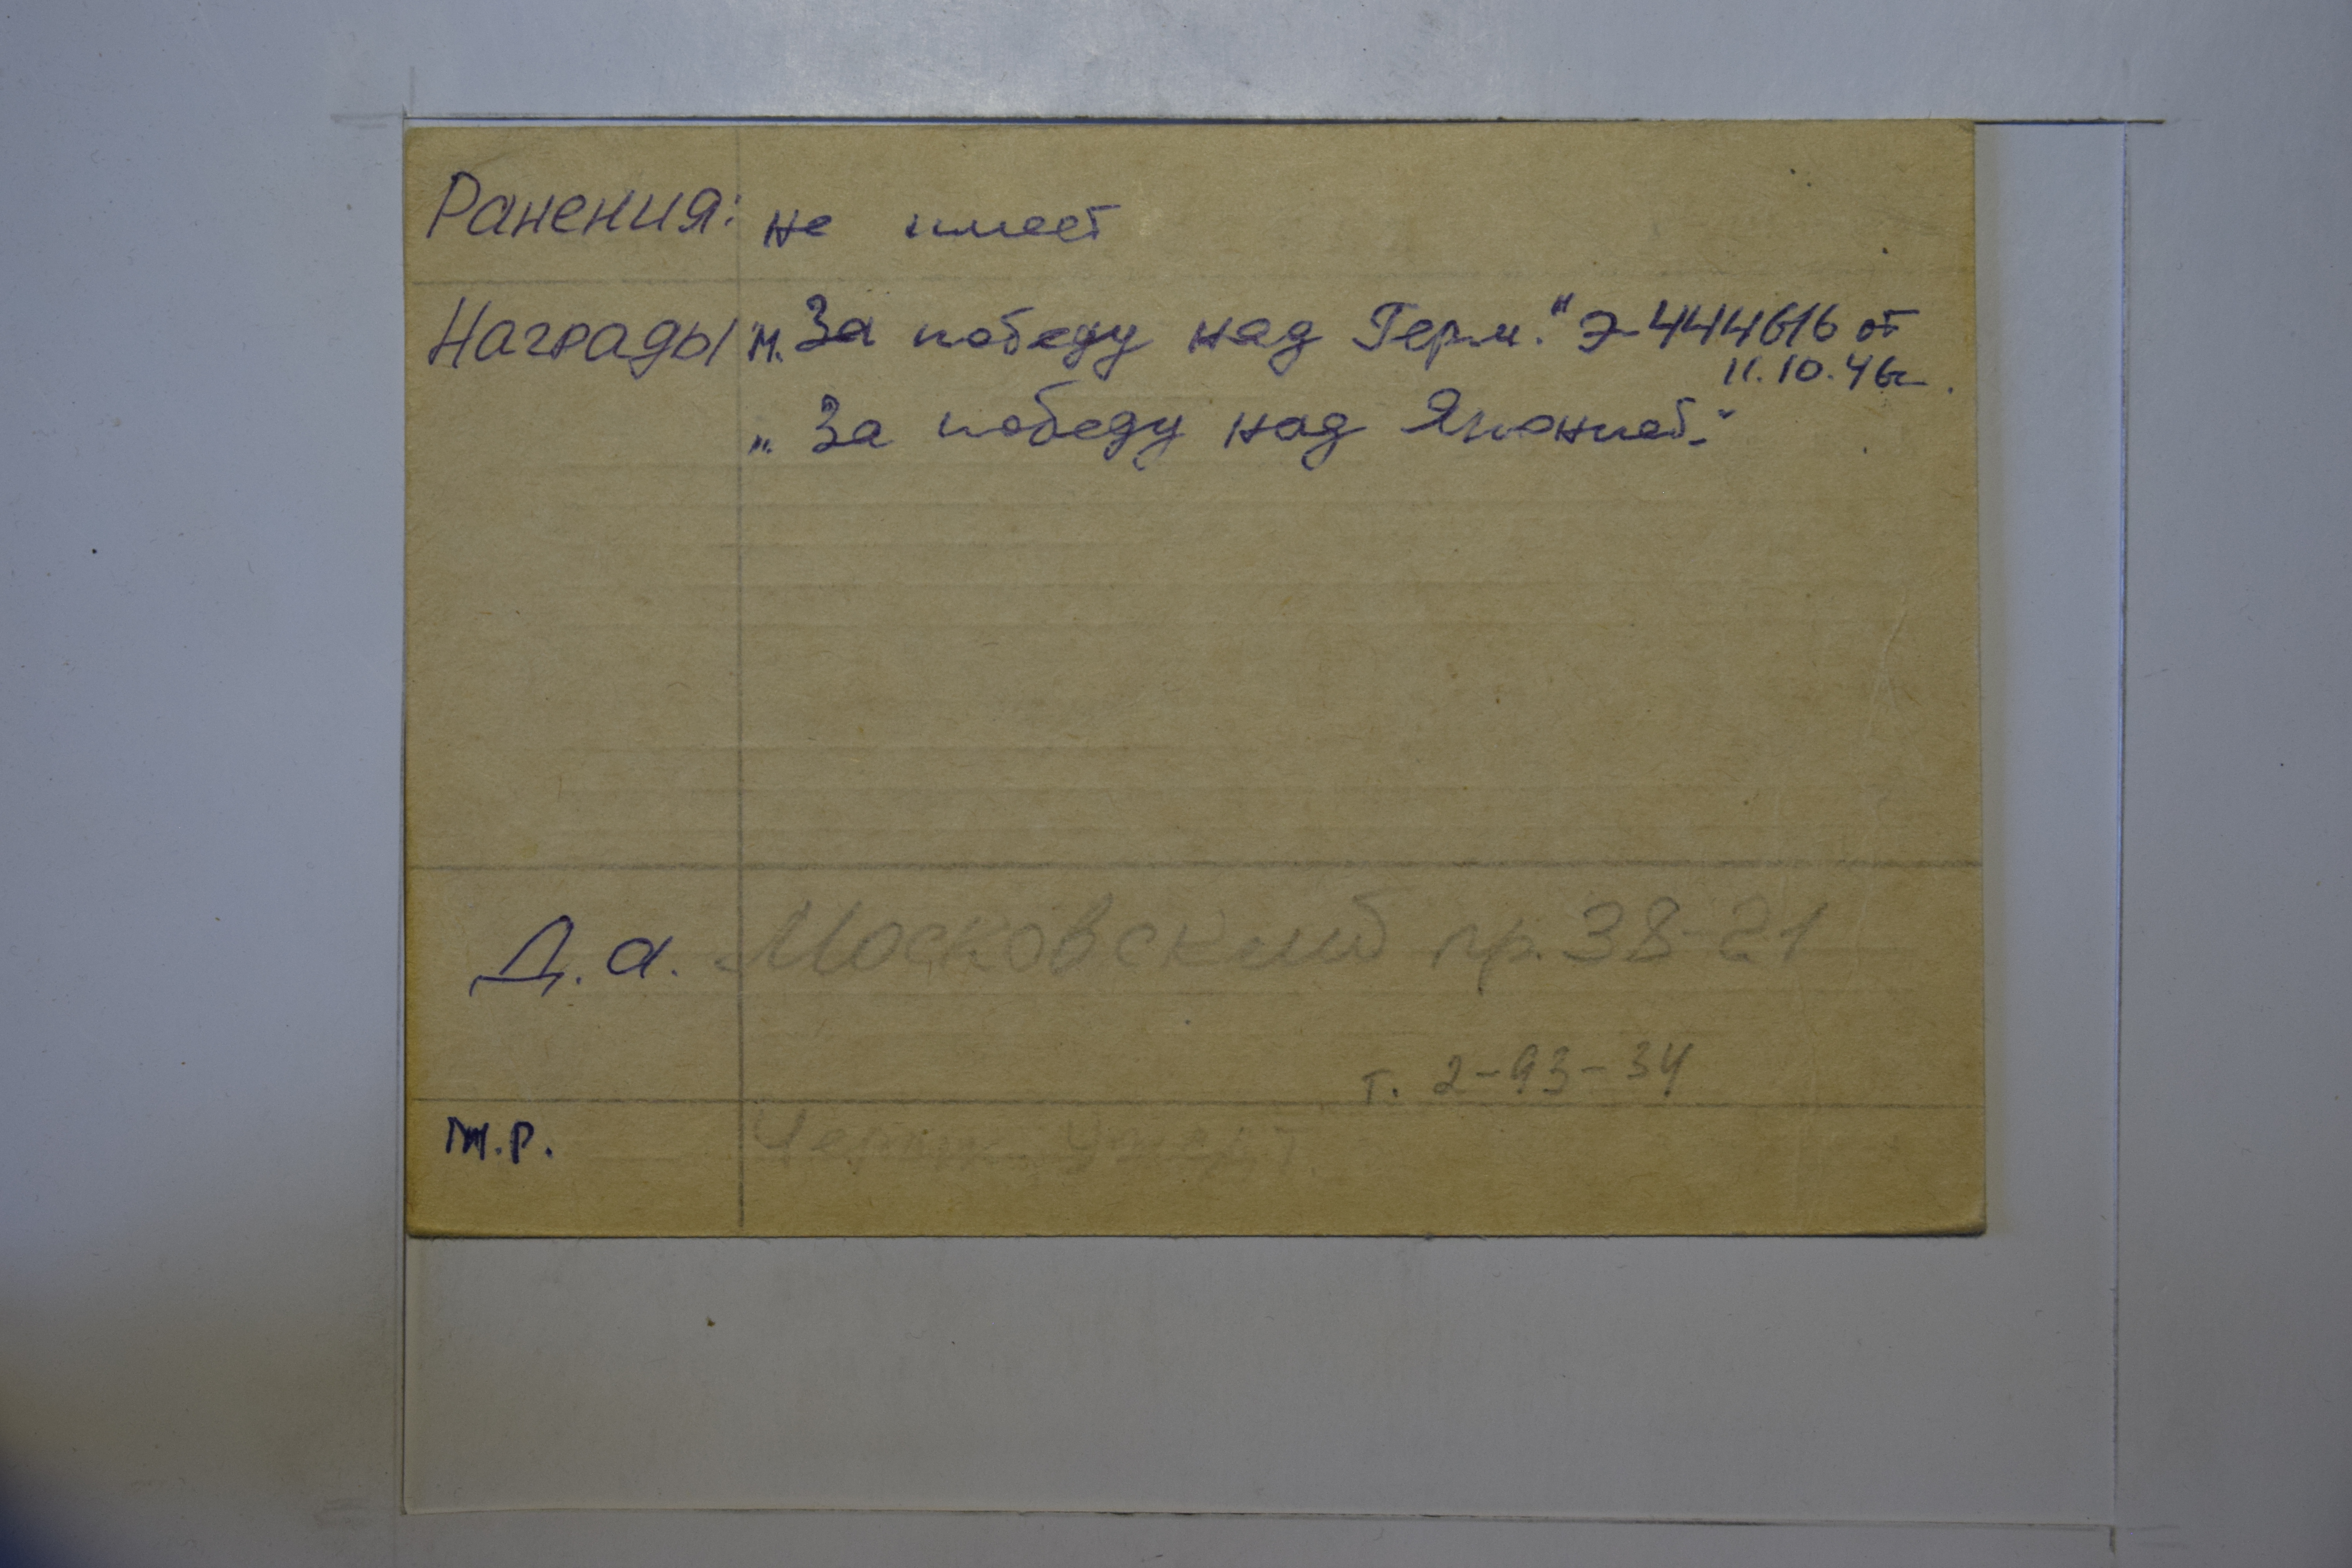 Ранения: не имеет
Награды м. „За победу над Герм." Э-444616 от
11.10.46г.
„ „За победу над Японией."
Д.а. Московский пр. 38-21
т. 2-93-34
М.р.